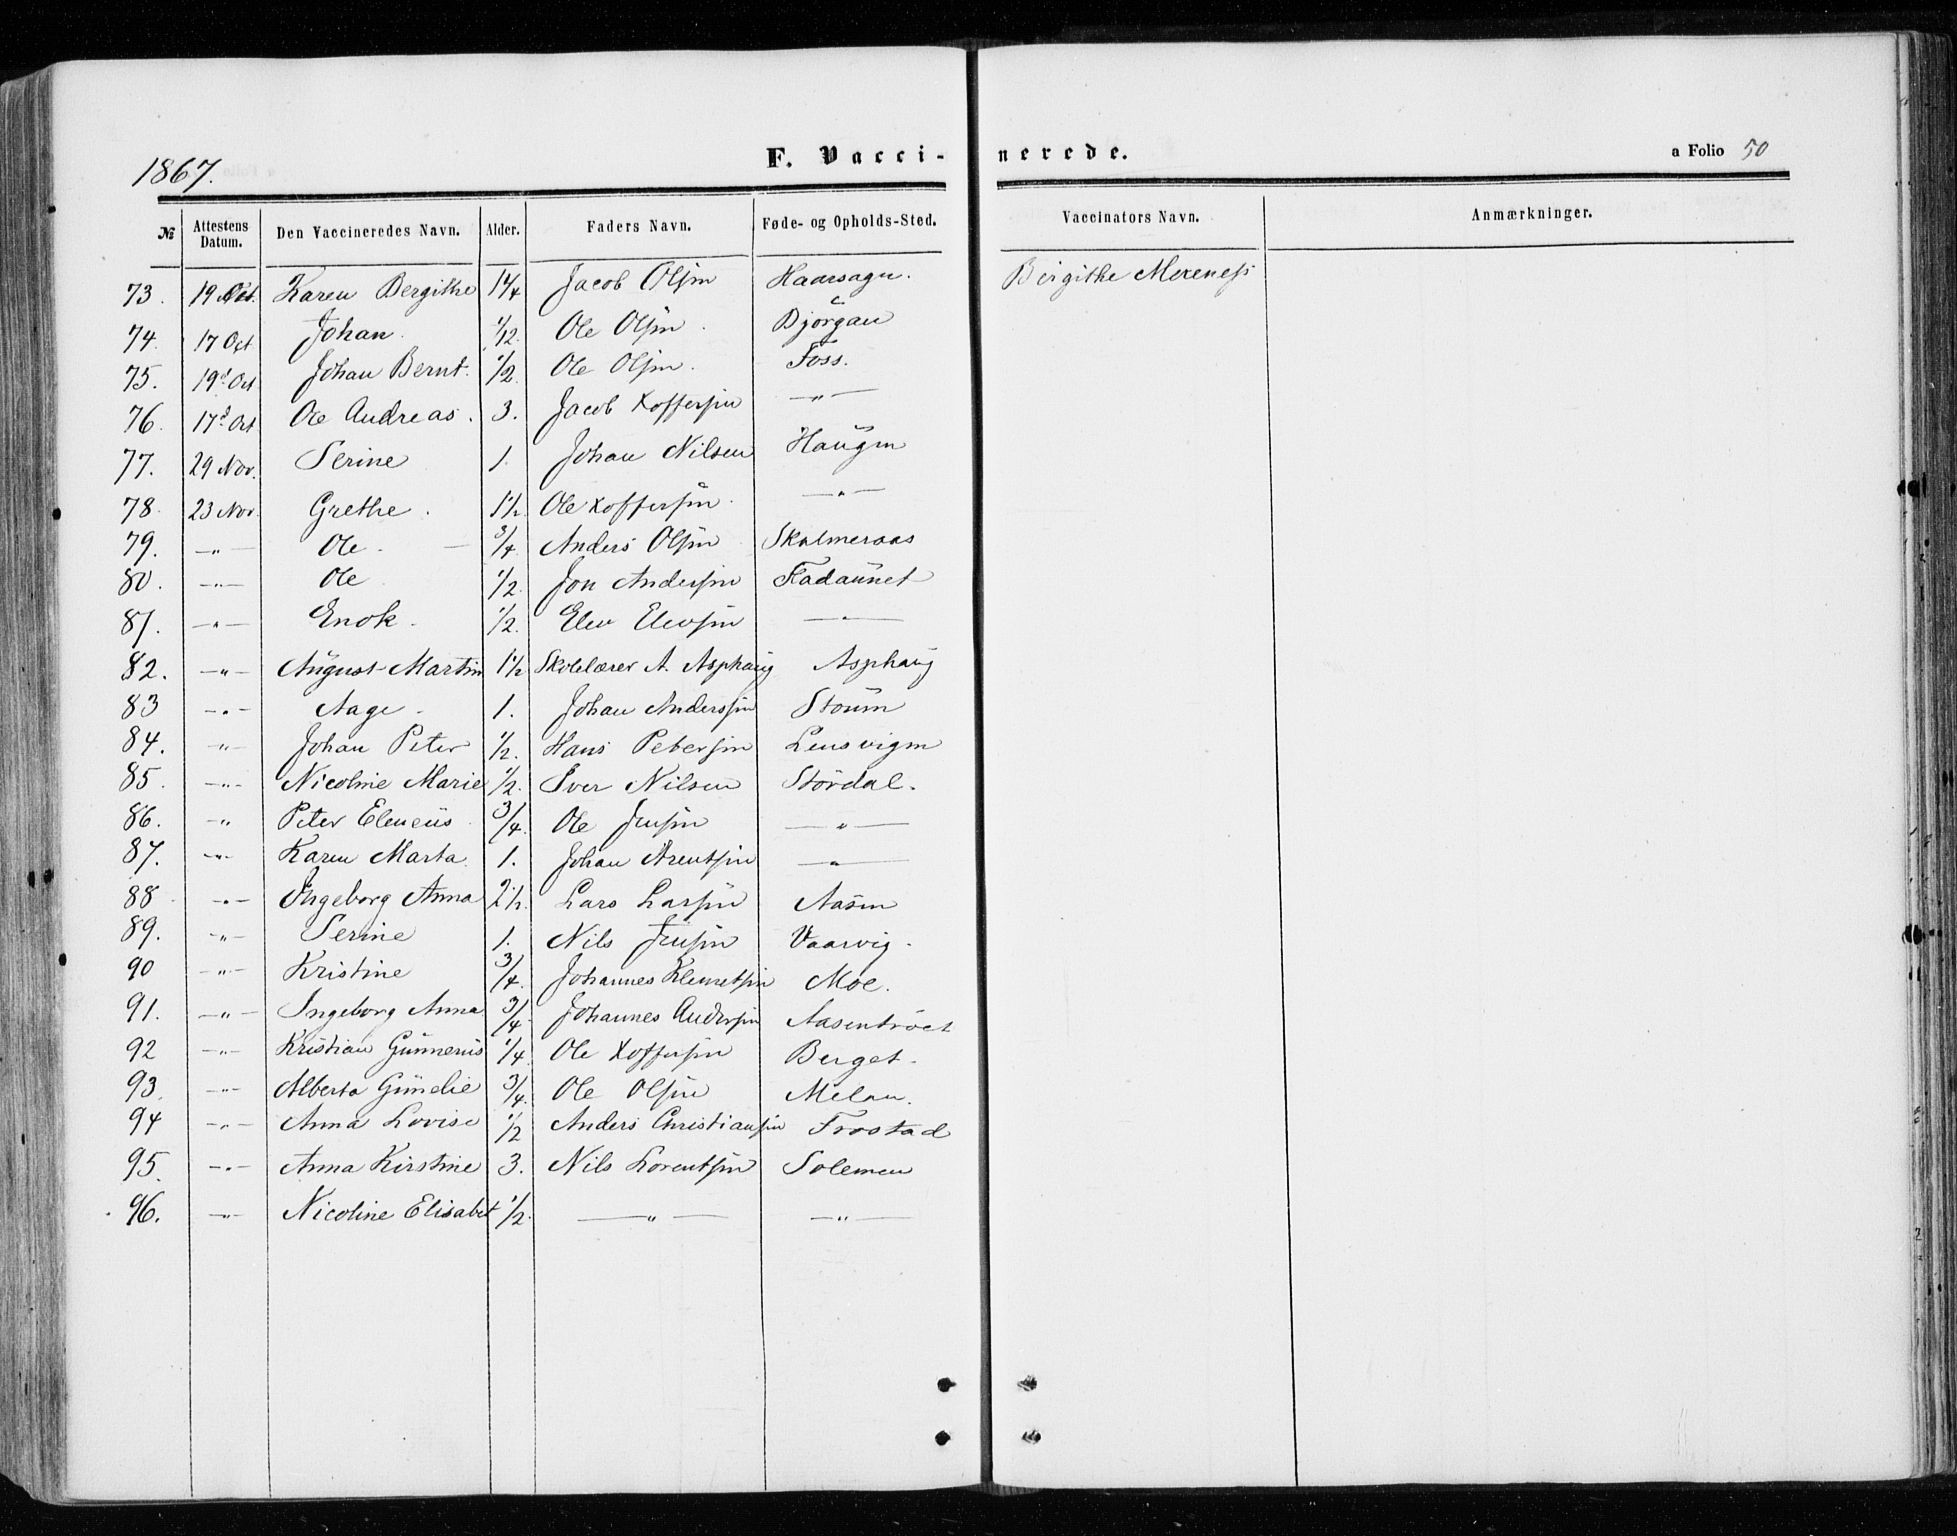 1867. F. Vacci- nerede. a Folio 50
№ Attestens Datum. Den Vaccineredes Navn. Alder. Faders Navn. Føde- og Opholds-Sted. Vaccinators Navn. Anmærkninger.
73. 19 Oct. Karen Bergithe 1¼ Jacob Olsen Haarsagn. Birgithe
74. 17 Oct. Johan. ½. Ole Olsen. Bjørgan
75. 19d Oct Johan Bernt. ½. Ole Olsen. Foss.
76. 17d Oct Ole Andreas. 3. Jacob Xoffersen —"—
77. 29 Nov. Serine 1. Johan Nilsen Haugen
78. 23 Nov. Grethe. 1½ Ole Xoffersen. —"—
79. —"— Ole. — ¾ Anders Olsen Skalmeraas
80. —"— Ole ½. Jon Andersen Fladaunet
81. —"— Enok. ½. Elev Elevsen —"—
82. —"— August Martin 1½ Skolelærer A. Asphaug Asphaug
83 —"— Aage. 1. Johan Anderssen Stoum
84. —"— Johan Peter ½. Hans Petersen Lensvigen
85. —"— Nicoline Marie ½. Iver Nilsen Størdal.
86. —"— Peter Eleneus ¾. Ole Jensen —"—
87. —"— Karen Marta. 1. Johan Arentsen —"—
88 —"— Ingeborg Anna 2½. Lars Larsen Aasen
89. —"— Serine 1. Nils Jensen Vaarvig.
90 —"— Kristine ¾. Johannes Klemetsen Moe.
91. —"— Ingeborg Anna ¾ Johannes Andersen Aasentrøet
92 —"— Kristian Gunnerus ¼. Ole Xoffersen Berget.
93. —"— Alberta Gunelie ¾. Ole Olsen Melan.
94 —"— Anna Lovise ½ Anders Christiansen Frostad
95. —"— Anna Kirstine 3. Nils Lorentsen Solemen
96. —"— Nicoline Elisabet ½. —"— —"—